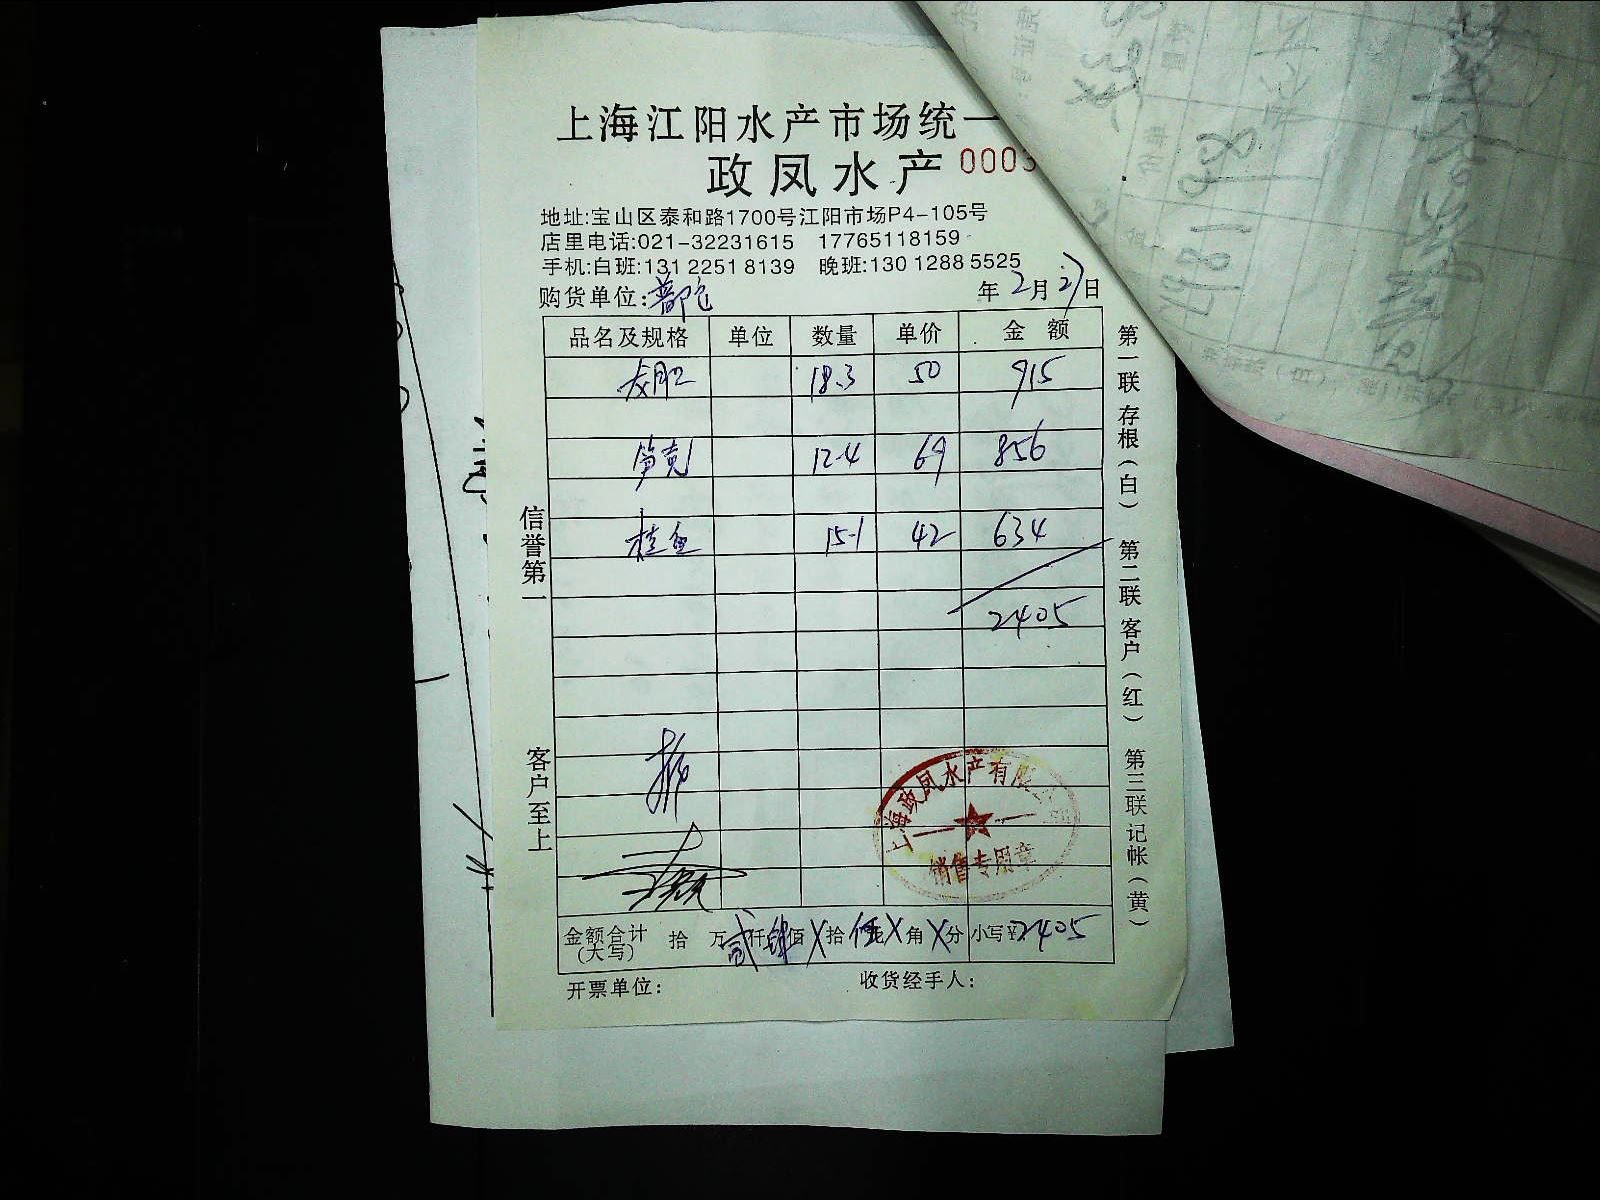 上海江阳水产市场统一
政凤水产 0003
地址:宝山区泰和路1700号江阳市场P4-105号
店里电话:021-32231615 17765118159
手机:白班:131 2251 8139 晚班:130 1288 5525
购货单位:普陀 年2月27日
品名及规格 单位 数量 单价 金额
18.3 50 915
笋壳 12.4 69 856
桂鱼 15.1 42 634
2405
金额合计(大写) 拾 万 贰仟 肆佰 X拾 伍元 X角 X分 小写¥2405
开票单位: 收货经手人:
信誉第一
客户至上
第一联存根(白) 第二联客户(红) 第三联记帐(黄)
上海政凤水产有限公司
销售专用章